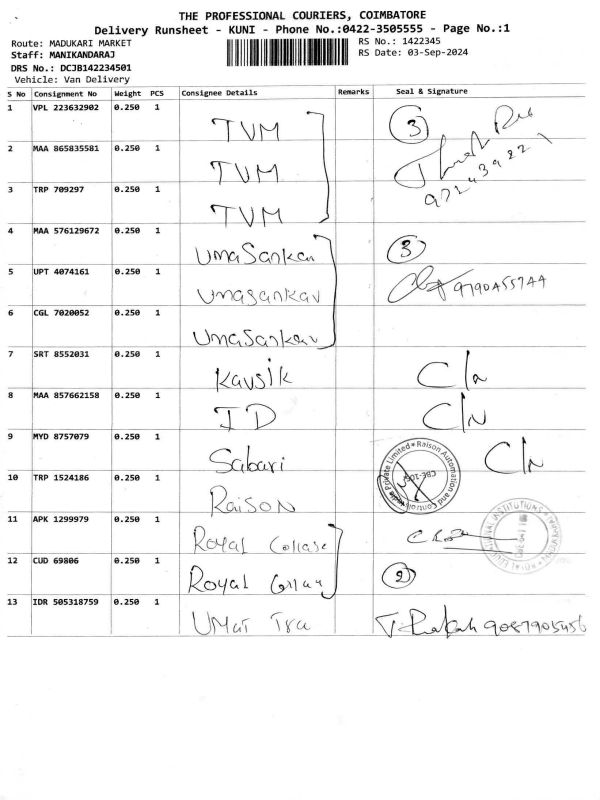 THE PROFESSIONAL COURIERS, COIMBATORE
Delivery Runsheet - KUNI - Phone No.:0422-3505555 - Page No.:1
Route: MADUKARI MARKET
RS No.: 1422345
Staff: MANIKANDARAJ
RS Date: 03-Sep-2024
DRS No.: DCJB142234501
Vehicle: Van Delivery
S No Consignment No Weight PCS Consignee Details Remarks Seal & Signature
1 VPL 223632902 0.250 1 TVM 3
2 MAA 865835581 0.250 1 TVM
3 TRP 709297 0.250 1 TVM
4 MAA 576129672 0.250 1 UmaSankar 3
5 UPT 4074161 0.250 1 Umasankar 9790455744
6 CGL 7020052 0.250 1 UmaSankar
7 SRT 8552031 0.250 1 Kavsik C/n
8 MAA 857662158 0.250 1 ID C/N
9 MYD 8757079 0.250 1 Sabari C/N
Raison Automation and Controls Private Limited
10 TRP 1524186 0.250 1 Raison
11 APK 1299979 0.250 1 Royal Collage
12 CUD 69806 0.250 1 Royal 2
13 IDR 505318759 0.250 1 UMat 9087905456